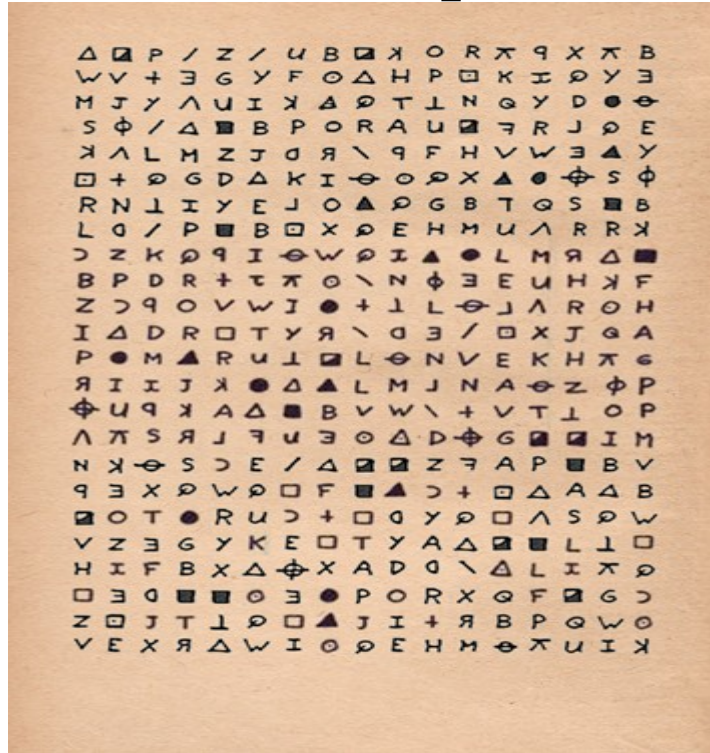 Δ ◪ P / Z / U B ◪ ꓘ O R π ꟼ X π B
W V + Ǝ G Y F ⊙ Δ H P ⊡ K I ⌕ Y Ǝ
M J Y Λ U I ꓘ ◬ ⌕ T ⊥ N Q Y D ● ⊖
S Φ / Δ ■ B P O R A U ◪ ꟻ R ⅃ ⌕ E
ꓘ Λ L M Z J ᗡ Я \ ꟼ F H V W Ǝ ▲ Y
⊡ + ⌕ G D Δ K I ⊖ ⊙ ⌕ X ▲ ● ⌖ S Φ
R N ⊥ I Y E ⅃ O ▲ ⌕ G B T Q S ■ B
L ᗡ / P ■ B ⊡ X ⌕ E H M U Λ R R ꓘ
Ɔ Z K ⌕ ꟼ I ⊖ W ⌕ I ▲ ● L M Я Δ ■
B P D R + τ π ⊙ \ N Φ Ǝ E U H ꓘ F
Z Ɔ ꟼ O V W I ● + ⊥ L ⊖ ⅃ Λ R O H
I Δ D R □ T Y Я \ ᗡ Ǝ / ⊡ X J Q A
P ● M ▲ R U ⊥ ◪ L ⊖ N V E K H π G
Я I I J ꓘ ● Δ ▲ L M ⅃ N A ⊖ Z Φ P
⌖ U ꟼ ꓘ A Δ ■ B V W \ + V T ⊥ O P
Λ π S Я ⅃ ꟻ U Ǝ ⊙ ◬ D ⌖ G ◪ ◪ I M
N ꓘ ⊖ S Ɔ E / Δ ◪ ◪ Z ꟻ A P ■ B V
ꟼ Ǝ X ⌕ W ⌕ □ F ■ ▲ Ɔ + ⊡ Δ A Δ B
◪ O T ● R U Ɔ + □ ᗡ Y ⌕ □ Λ S ⌕ W
V Z Ǝ G Y K E □ T Y A Δ ◪ ■ L ⊥ □
H I F B X Δ ⌖ X A D ᗡ \ ◬ L I π ⌕
□ Ǝ ᗡ ■ ■ ⊙ Ǝ ● P O R X Q F ◪ G Ɔ
Z ⊡ J T ⊥ ⌕ □ ▲ J I + Я B P Q W ⊙
V E X Я Δ W I ⊙ ⌕ E H M ⊖ π U I ꓘ